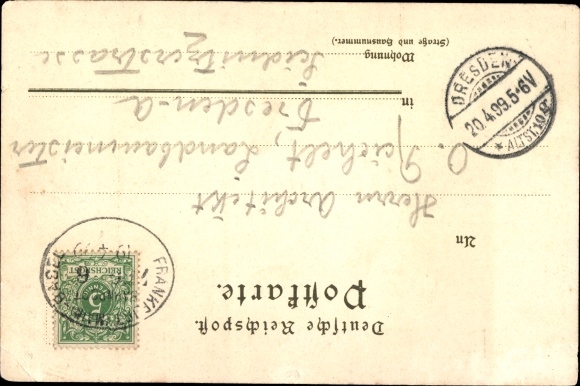 Deutsche Reichspost.
Postkarte.
An
Herrn Architekt
O. Reichelt, Landbaumeister
in Dresden-A
Wohnung Seidnitzerstrasse
(Straße und Hausnummer.)
REICHSPOST
5
PFENNIG
DRESDEN
20.4.99.5-6V
* ALTST.